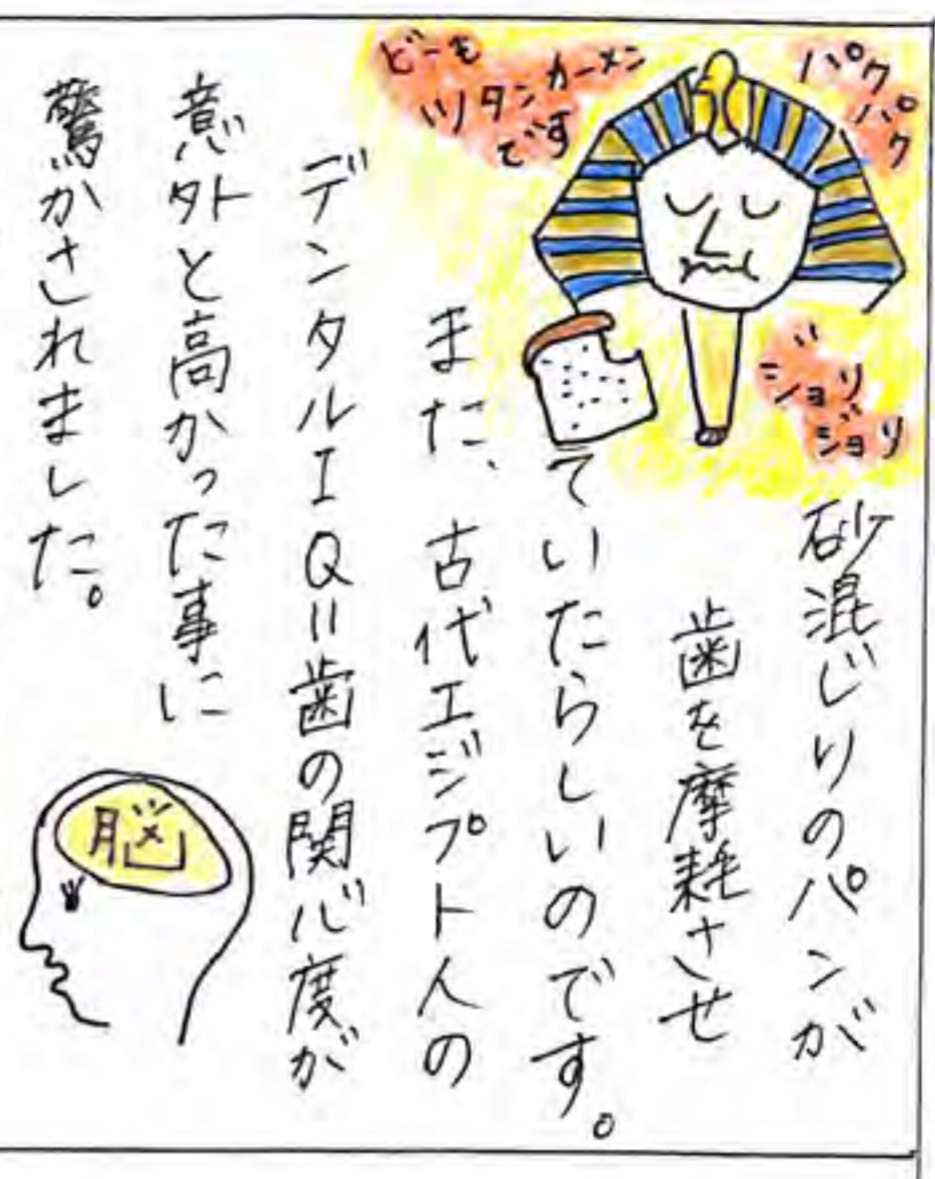 パク
パク
どーも
ツタンカーメン
です
ジョリ
ジョリ
砂混じりのパンが
歯を摩耗させ
ていたらしいのです。
また、古代エジプト人の
デンタルIQ=歯の関心度が
意外と高かった事に
驚かされました。
脳